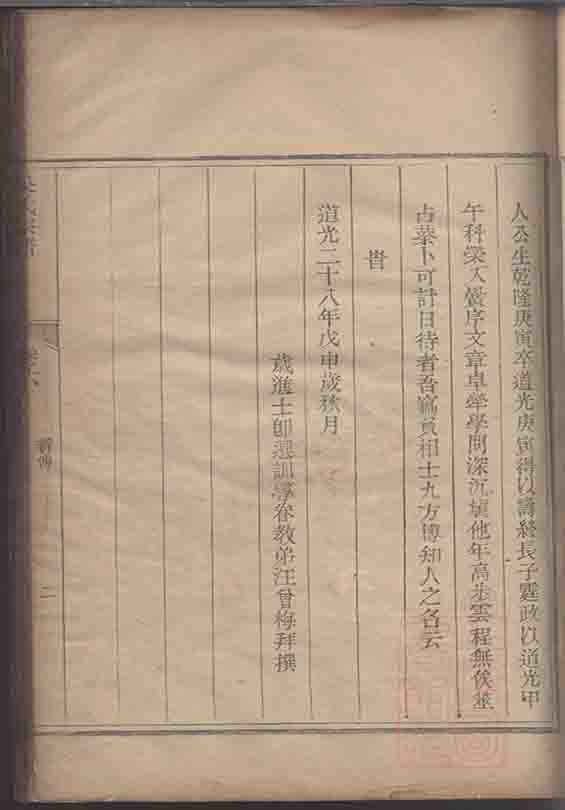 人公生乾隆庚寅卒道光庚寅得以壽終長子霆政以道光甲
午科榮入黌序文章卓犖學問深沉填他年高步雲程無俟筮
占葉卜可計日待者吾寫員相士九方博知人之名云
旹
道光二十八年戊申歲秋月
歲進士即選訓導眷教弟汪曾梅拜撰
二